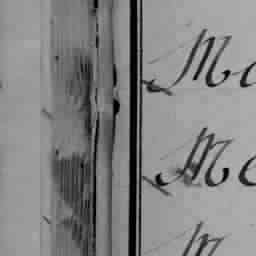 Ma
Ma
M